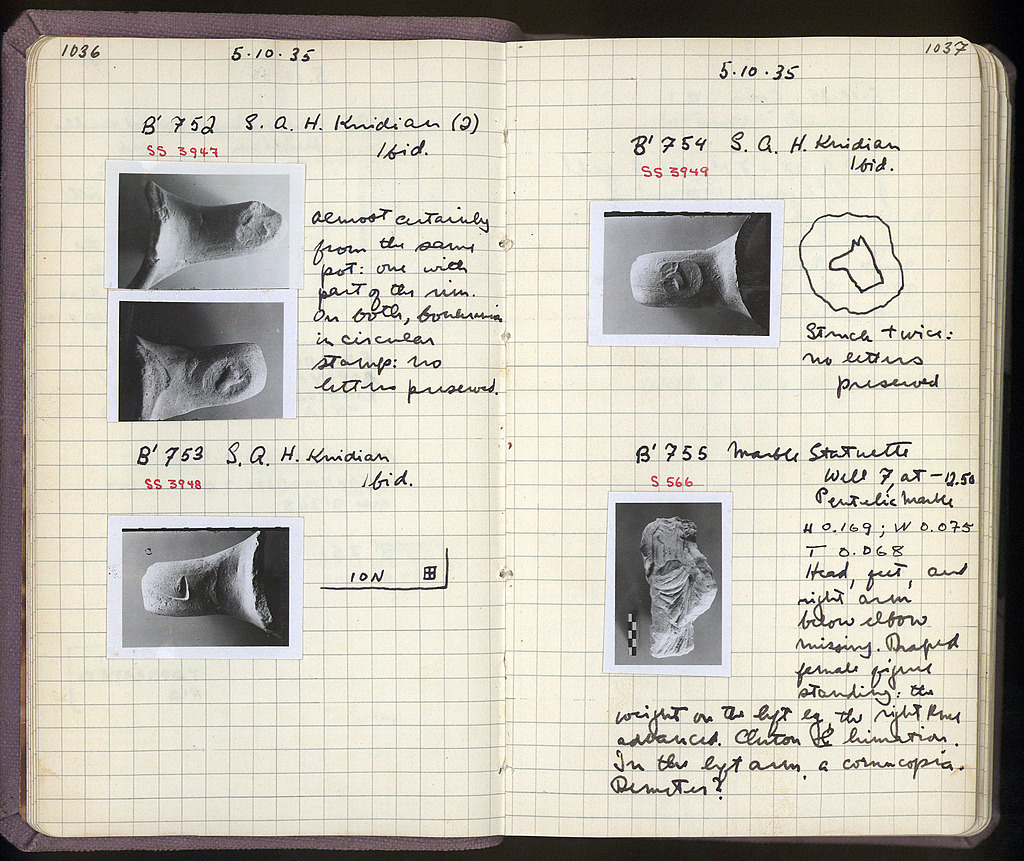 1036
5·10·35
B' 752 S. A. H. Knidian (2)
SS 3947
Ibid.
Almost certainly
from the same
pot: one with
part of the rim.
On both, boukranion
in circular
stamp: no
letters preserved.
B' 753 S. A. H. Knidian
SS 3948
Ibid.
ION
1037
5·10·35
B' 754 S. A. H. Knidian
SS 3949
Ibid.
Struck twice:
no letters
preserved
B' 755 Marble Statuette
S 566
Well 7, at -12.50
Pentelic Marble
H 0.169; W 0.075
T 0.068
Head, feet, and
right arm
below elbow
missing. Draped
female figure
standing: the
weight on the left leg, the right knee
advanced. Chiton & himation.
In the left arm, a cornucopia.
Demeter?